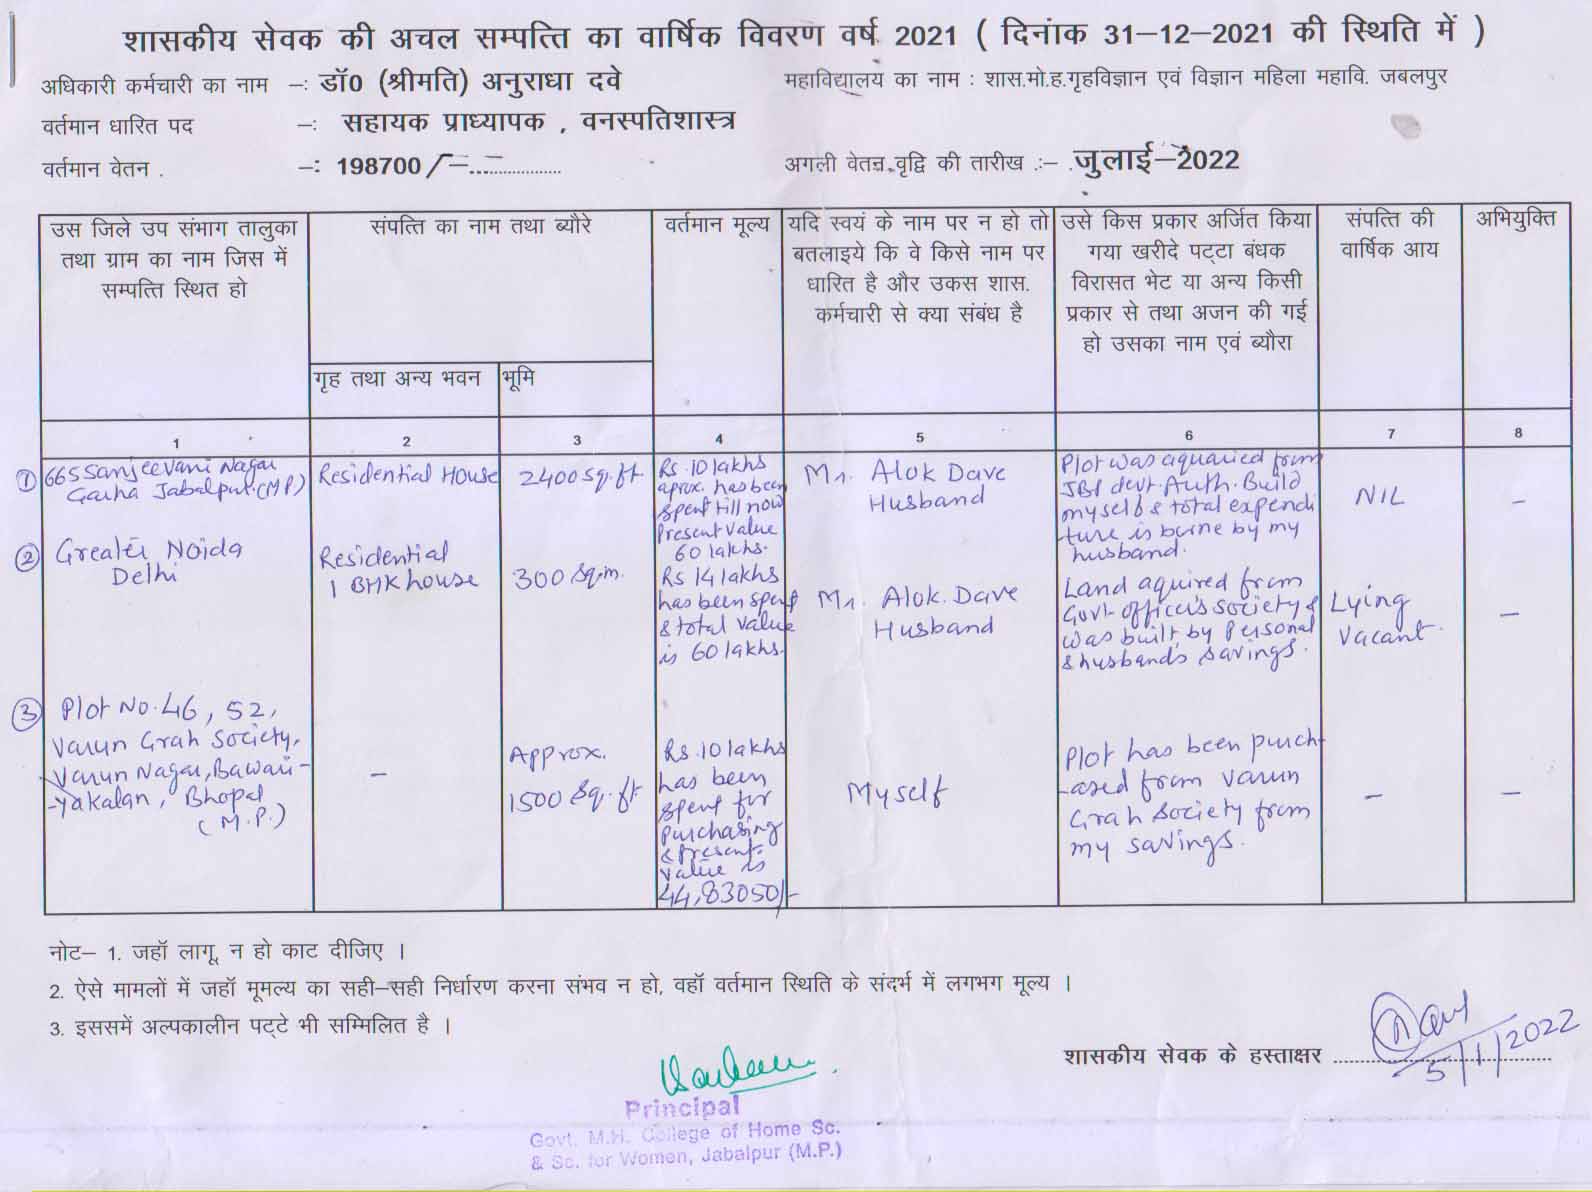 शासकीय सेवक की अचल सम्पत्ति का वार्षिक विवरण वर्ष 2021 ( दिनांक 31–12–2021 की स्थिति में )
अधिकारी कर्मचारी का नाम –: डॉ0 (श्रीमति) अनुराधा दवे
महाविद्यालय का नाम : शास.मो.ह.गृहविज्ञान एवं विज्ञान महिला महावि. जबलपुर
वर्तमान धारित पद –: सहायक प्राध्यापक , वनस्पतिशास्त्र
वर्तमान वेतन . –: 198700/–
अगली वेतन वृद्वि की तारीख .:– . जुलाई–2022
उस जिले उप संभाग तालुका
तथा ग्राम का नाम जिस में
सम्पत्ति स्थित हो
संपत्ति का नाम तथा ब्यौरे
गृह तथा अन्य भवन
भूमि
वर्तमान मूल्य
यदि स्वयं के नाम पर न हो तो
बतलाइये कि वे किसे नाम पर
धारित है और उकस शास.
कर्मचारी से क्या संबंध है
उसे किस प्रकार अर्जित किया
गया खरीदे पट्टा बंधक
विरासत भेट या अन्य किसी
प्रकार से तथा अजन की गई
हो उसका नाम एवं ब्यौरा
संपत्ति की
वार्षिक आय
अभियुक्ति
1 2 3 4 5 6 7 8
① 665 Sanjeevani Nagar
Garha Jabalpur.(MP)
Residential House
2400 Sq.ft
Rs. 10 lakhs
aprox. has been
spent till now
Present value
60 lakhs.
Mr. Alok Dave
Husband
Plot was aquaried from
JBP devt. Auth. Build
myself & total expendi
ture is burne by my
husband.
NIL
–
② Greater Noida
Delhi
Residential
1 BHK house
300 sq.m.
Rs 14 lakhs
has been spent
& total value
is 60 lakhs.
Mr. Alok. Dave
Husband
Land aquired from
Govt officer's society &
was built by Personal
& husbands savings.
Lying
vacant.
–
③ Plot No. 46, 52,
Varun Grah Society,
Varun Nagar, Bawari-
-yakalan, Bhopal
(M.P.)
–
Approx.
1500 Sq. ft
Rs. 10 lakhs
has been
spent for
purchasing
& present
value is
44,83050/-
Myself
Plot has been purch-
-ased from Varun
Grah Society from
my savings.
–
–
नोट– 1. जहॉ लागू न हो काट दीजिए ।
2. ऐसे मामलों में जहॉ मूमल्य का सही–सही निर्धारण करना संभव न हो, वहॉ वर्तमान स्थिति के संदर्भ में लगभग मूल्य ।
3. इससमें अल्पकालीन पट्टे भी सम्मिलित है ।
शासकीय सेवक के हस्ताक्षर
5/1/2022
Principal
Govt. M.H. College of Home Sc.
& Sc. for Women, Jabalpur (M.P.)